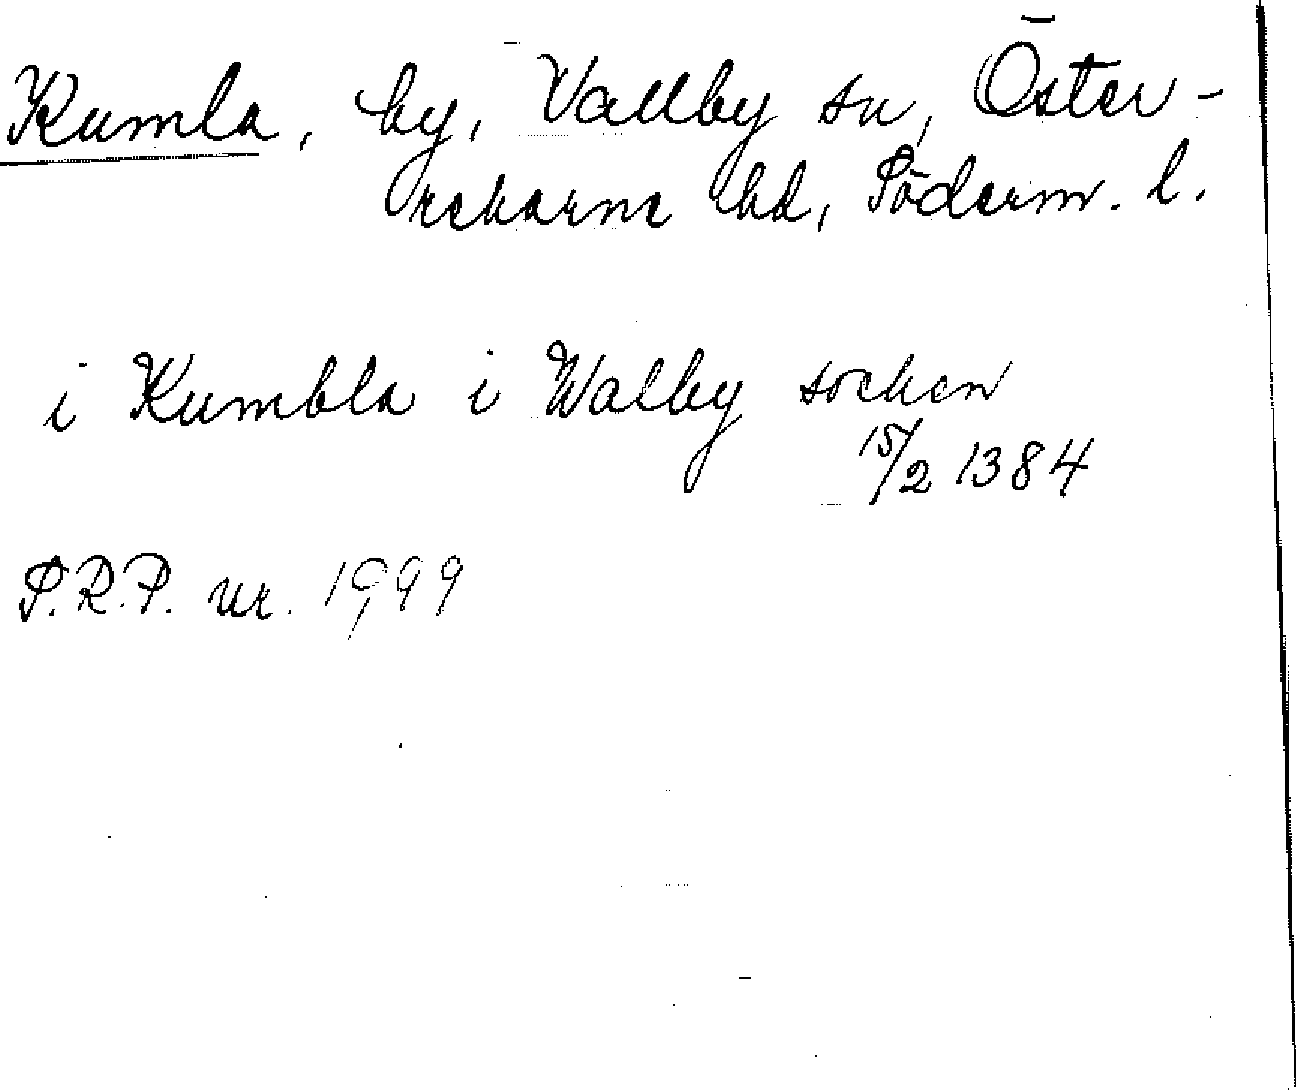 Kumla, by, Vallby sn, Öster-
rekarne hd, Söderm. l.
i Kumbla i Walby socken
15/2 1384
S.R.P. nr. 1999